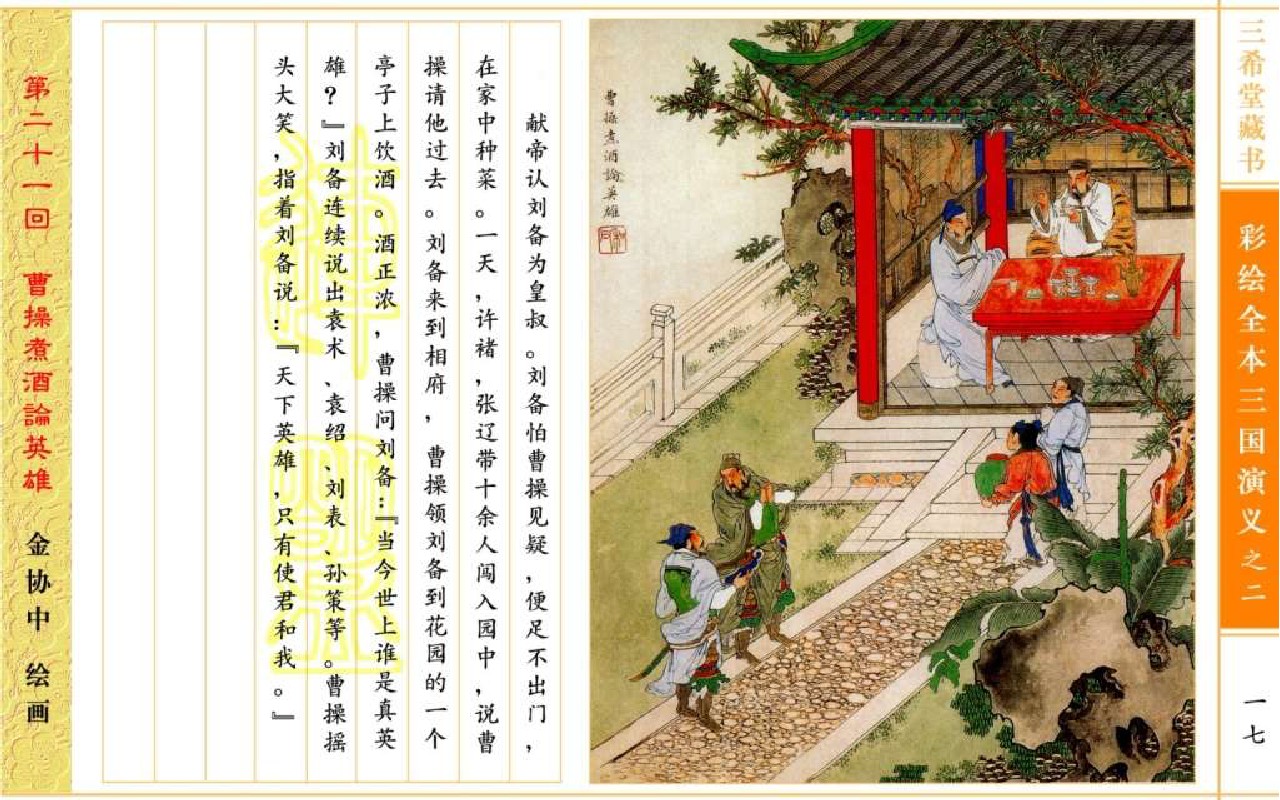 三希堂藏书
彩绘全本三国演义之二
一七
曹操煮酒論英雄
献帝认刘备为皇叔。刘备怕曹操见疑,便足不出门,
在家中种菜。一天,许褚,张辽带十余人闯入园中,说曹
操请他过去。刘备来到相府,曹操领刘备到花园的一个
亭子上饮酒。酒正浓,曹操问刘备:『当今世上谁是真英
雄?』刘备连续说出袁术、袁绍、刘表、孙策等。曹操摇
头大笑,指着刘备说:『天下英雄,只有使君和我。』
第二十一回 曹操煮酒論英雄 金协中 绘画